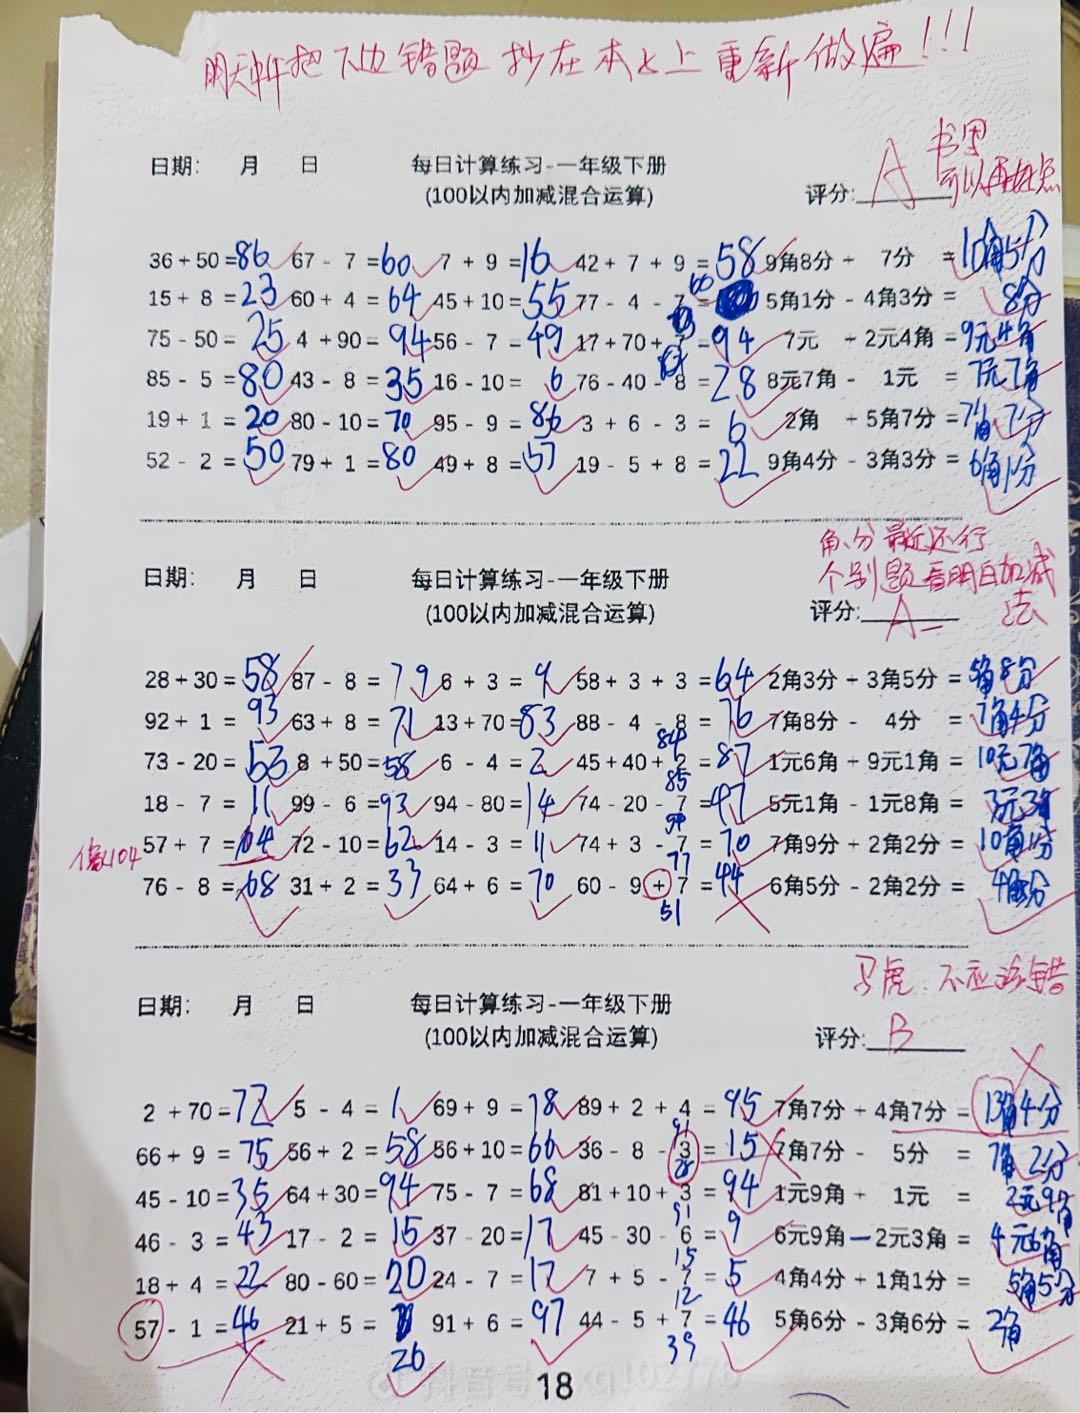 明天中午把下边错题抄在本上重新做遍!!!
日期: 月 日 每日计算练习-一年级下册
(100以内加减混合运算) 评分: A 书写可以再
36 + 50 = 86 67 - 7 = 60 7 + 9 = 16 42 + 7 + 9 = 58 9角8分 + 7分 = 10角5分
15 + 8 = 23 60 + 4 = 64 45 + 10 = 55 77 - 4 - 7 = 66 5角1分 - 4角3分 = 8分
75 - 50 = 25 4 + 90 = 94 56 - 7 = 49 17 + 70 + 7 = 94 7元 + 2元4角 = 9元4角
85 - 5 = 80 43 - 8 = 35 16 - 10 = 6 76 - 40 - 8 = 28 8元7角 - 1元 = 7元7角
19 + 1 = 20 80 - 10 = 70 95 - 9 = 86 3 + 6 - 3 = 6 2角 + 5角7分 = 7角7分
52 - 2 = 50 79 + 1 = 80 49 + 8 = 57 19 - 5 + 8 = 22 9角4分 - 3角3分 = 6角1分
角、分最近还行
个别题看明白加减法
日期: 月 日 每日计算练习-一年级下册
(100以内加减混合运算) 评分: A-
28 + 30 = 58 87 - 8 = 79 6 + 3 = 9 58 + 3 + 3 = 64 2角3分 + 3角5分 = 5角8分
92 + 1 = 93 63 + 8 = 71 13 + 70 = 83 88 - 4 - 8 = 76 7角8分 - 4分 = 7角4分
84
73 - 20 = 53 8 + 50 = 58 6 - 4 = 2 45 + 40 + 2 = 87 1元6角 + 9元1角 = 10元7角
85
18 - 7 = 11 99 - 6 = 93 94 - 80 = 14 74 - 20 - 7 = 47 5元1角 - 1元8角 = 3元3角
54
像104 57 + 7 = 64 72 - 10 = 62 14 - 3 = 11 74 + 3 - 7 = 70 7角9分 + 2角2分 = 10角1分
77
76 - 8 = 68 31 + 2 = 33 64 + 6 = 70 60 - 9 + 7 = 44 6角5分 - 2角2分 = 4角3分
51
马虎:不应该错
日期: 月 日 每日计算练习-一年级下册
(100以内加减混合运算) 评分: B
2 + 70 = 72 5 - 4 = 1 69 + 9 = 78 89 + 2 + 4 = 95 7角7分 + 4角7分 = 13角4分
91
66 + 9 = 75 56 + 2 = 58 56 + 10 = 66 36 - 8 - 3 = 15 7角7分 - 5分 = 7角2分
28
45 - 10 = 35 64 + 30 = 94 75 - 7 = 68 81 + 10 + 3 = 94 1元9角 + 1元 = 2元9角
91
46 - 3 = 43 17 - 2 = 15 37 - 20 = 17 45 - 30 - 6 = 9 6元9角 - 2元3角 = 4元6角
15
18 + 4 = 22 80 - 60 = 20 24 - 7 = 17 7 + 5 - 7 = 5 4角4分 + 1角1分 = 5角5分
12
57 - 1 = 46 21 + 5 = 26 91 + 6 = 97 44 - 5 + 7 = 46 5角6分 - 3角6分 = 2角
39
18